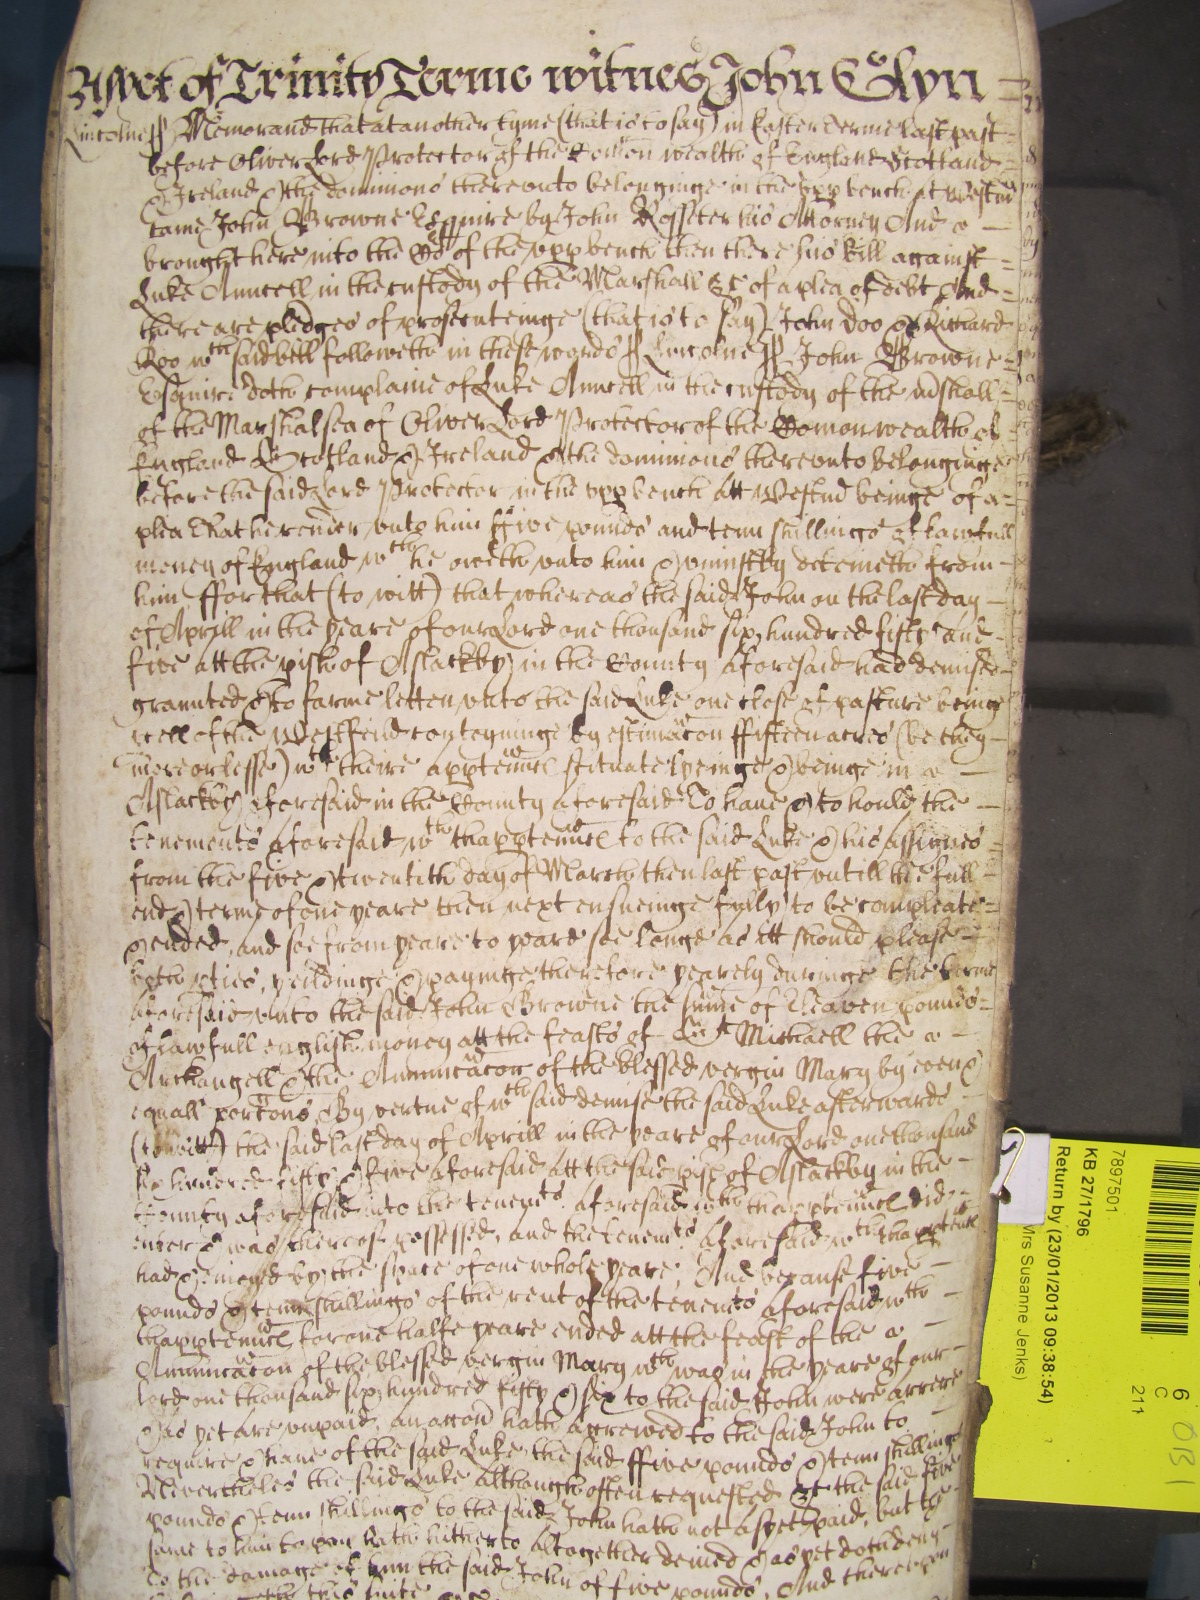 As yet of Trinity Terme witnes John Glyn
Lincolne ss Memorand that at another tyme (that is to say) in Easter Terme last past
before Oliver Lord Protector of the Comon wealth of England Scotland
& Ireland & the dominions thereunto belonginge in the upp bench at Westm
came John Browne Esquire by John Rosseter his Attorney And
brought here into the Co:rt of the upp bench then there his bill against
Luke Anncell in the custody of the Marshall &c of a plea of debt And
there are pledges of prosecuteinge (that is to say) John Doo & Richard
Roo wch said bill followeth in these words ss Lincolne ss John Browne
Esquire doth complaine of Luke Anncell in the custody of the mshall
of the Marshalsea of Oliver Lord Protector of the Comon wealth of
England Scotland & Ireland & the dominions thereunto belonginge
before the said Lord Protector in the upp bench att Westm beinge of a
plea That he render unto him ffive pounds and tenn shillings of lawfull
money of England wch he oweth unto him & uniustly deteineth from
him ffor that (to witt) that whereas the said John on the last day
of Aprill in the yeare of our Lord one thousand six hundred fifty and
five att the pish of Aslackby in the County aforesaid had demised
graunted & to farme letten unto the said Luke one close of pasture being
pcell of the Westfeild conteyninge by estimacon ffifteen acres (be they
more or lesse) wth theire apptennc scituate lyeinge & beinge in
Aslackby aforesaid in the County aforesaid To have & to hould the
tenements aforesaid wth thapptennc to the said Luke & his assignes
from the five & twentith day of March then last past untill the full
end & terme of one yeare then next ensueinge fully to be compleate
& ended, and soe from yeare to yeare soe longe as itt should please
both pties, yeildinge & payinge therefore yearely duringe the terme
aforesaid unto the said John Browne the sume of Eleaven pounds
of lawfull english money att the feasts of St Michaell the
Archangell & the Annunciacon of the blessed vergin Mary by even &
equall porcons By vertue of wch said demise the said Luke afterwards
(to witt) the said last day of Aprill in the yeare of our Lord one thousand
six hundred fifty & five aforesaid att the said pish of Aslackby in the
County aforesaid into the tenemts aforesaid wth thapptennc did
enter & was thereof possessed, and the tenemts aforesaid wth thapptennc
had & enioyed by the space of one whole yeare, And because five
pounds & tenn shillings of the rent of the tenemts aforesaid wth
thapptennc for one halfe yeare ended att the feast of the
Annunciacon of the blessed vergin Mary wch was in the yeare of our
lord one thousand six hundred fifty & six to the said John were arrere
& as yet are unpaid, an accon hath accrewed to the said John to
require & have of the said Luke the said ffive pounds & tenn shillings
Neverthelesˢ the said Luke Although often requested &c the said five
pounds & tenn shillings to the said John hath not as yet paid, but the
same to him to pay hath hitherto altogether denied & as yet doth deny
To the damage of him the said John of five pounds, And thereupon
this suite
7897501
KB 27/1796
Return by (23/01/2013 09:38:54)
Mrs Susanne Jenks)
6
C
211